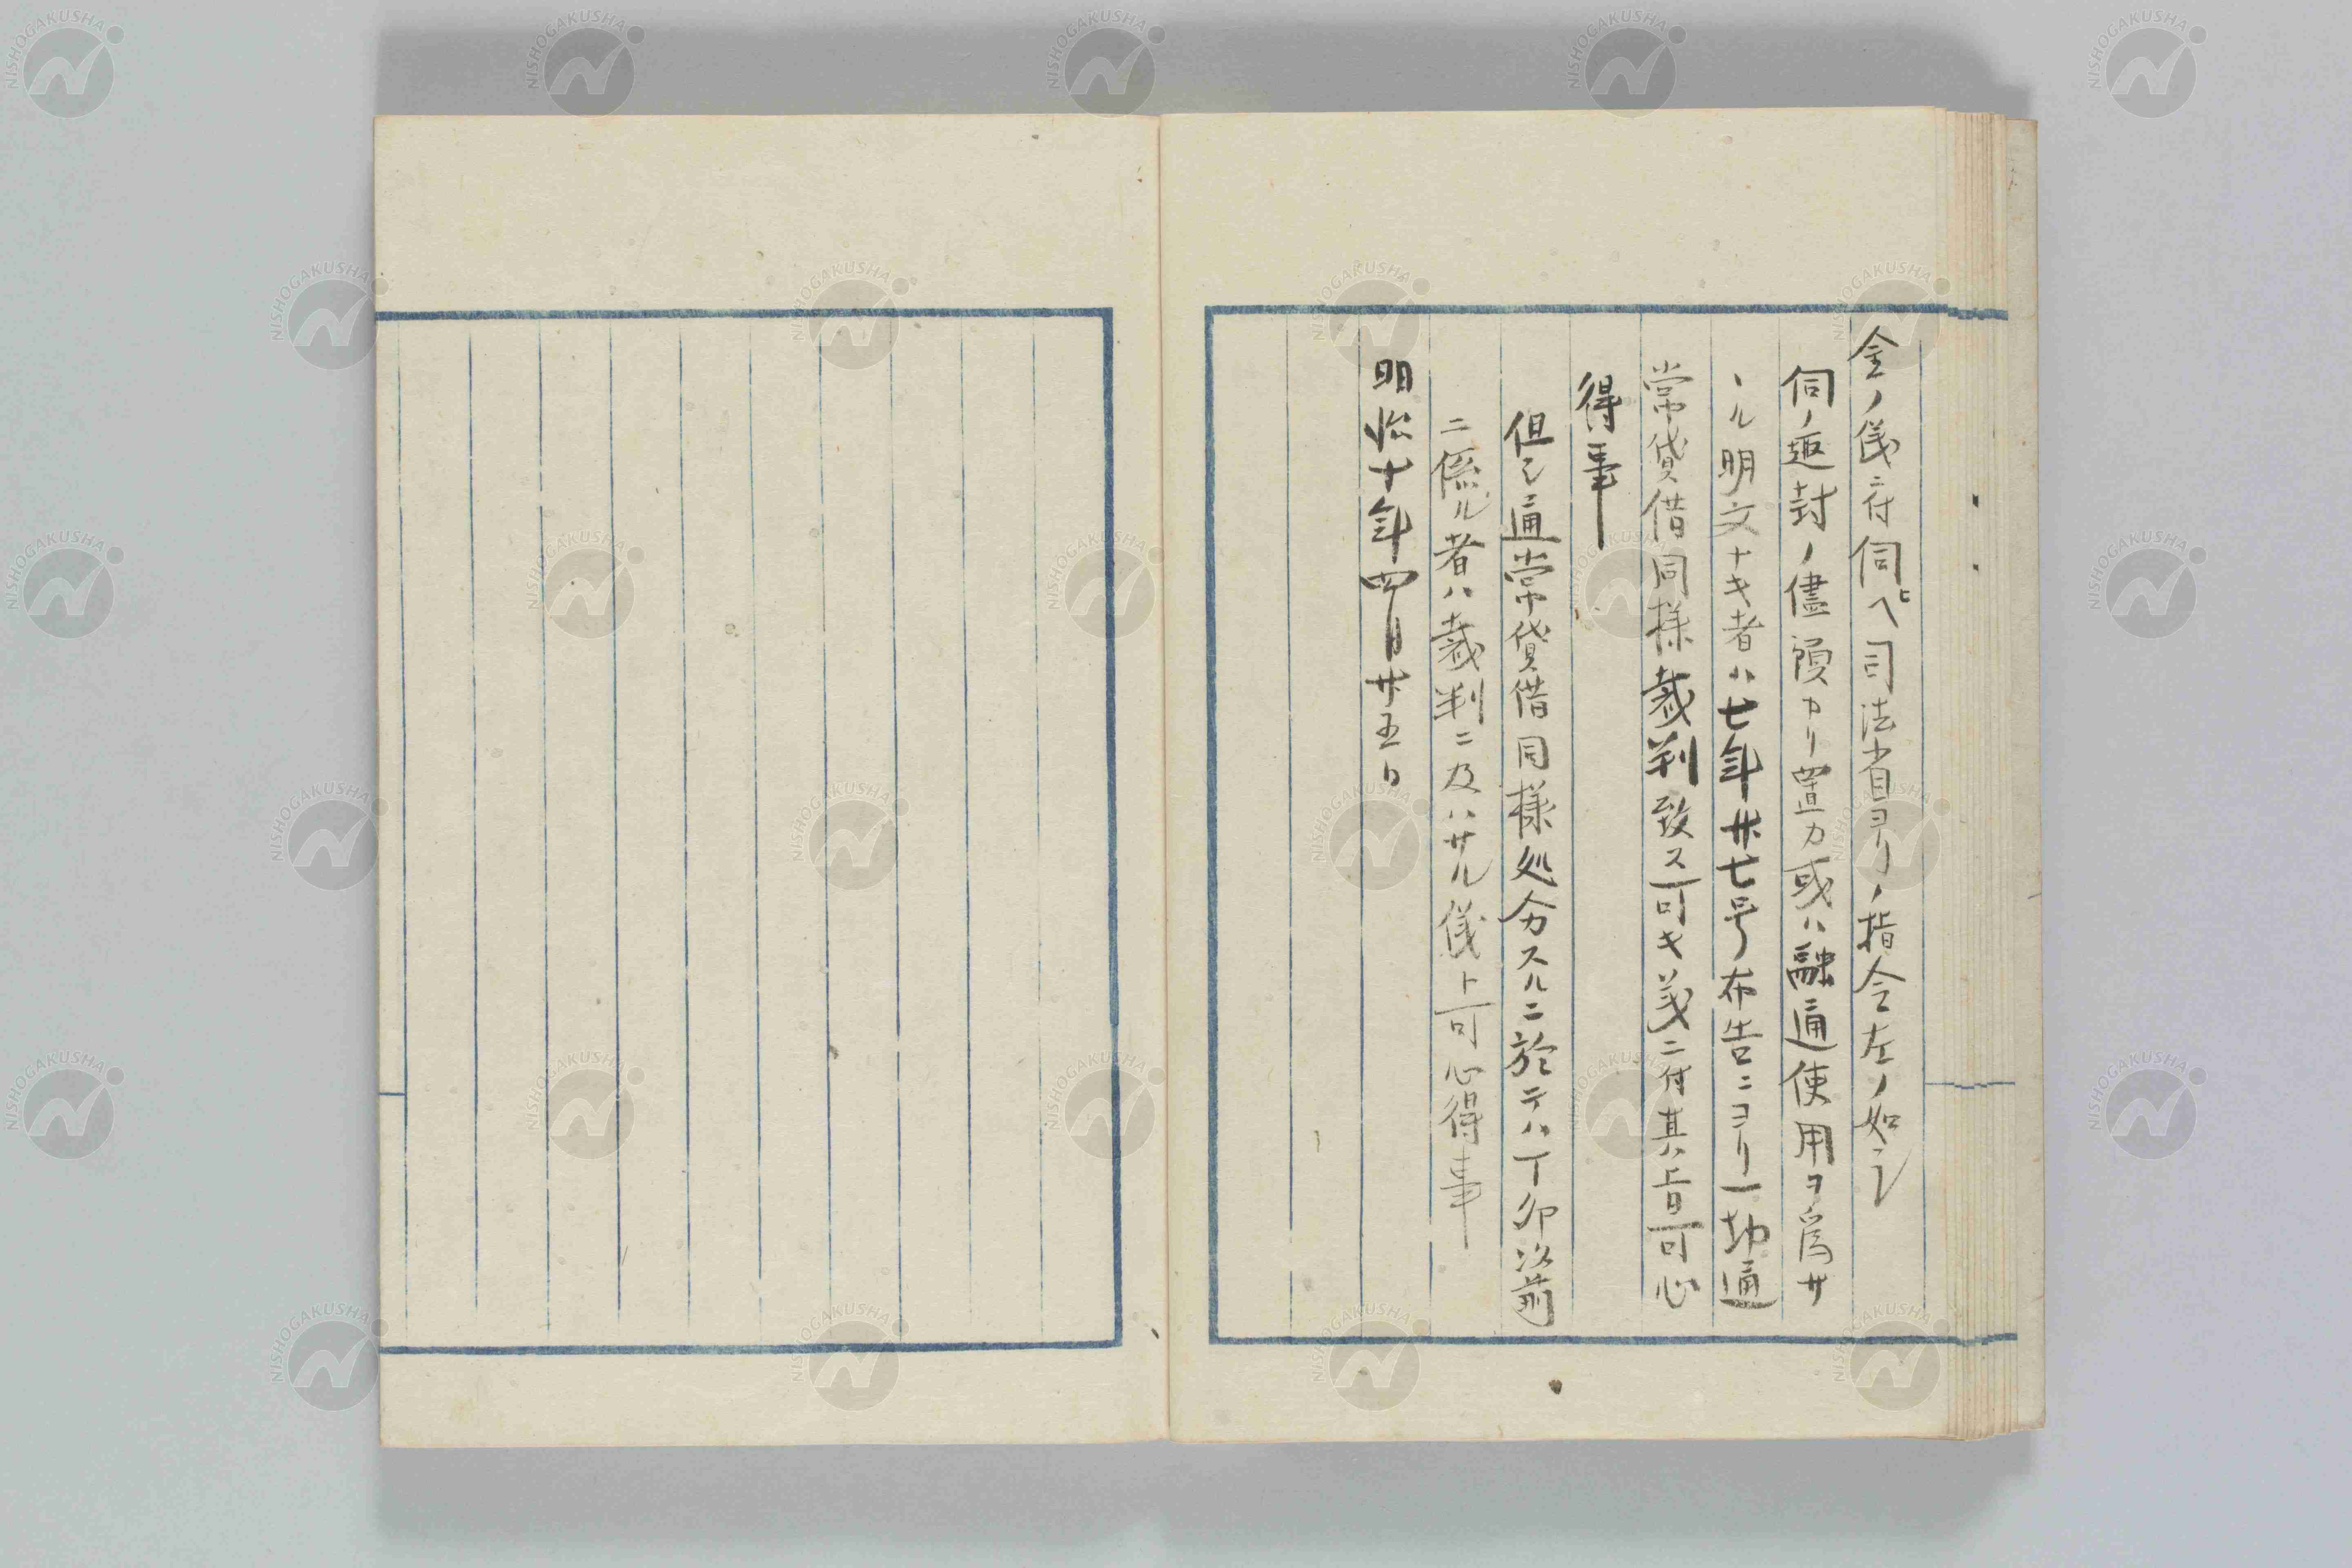 金ノ儀ニ付伺ヒヘ司法省ヨリノ指令左ノ如シ
伺ノ趣封ノ儘預カリ置カ或ハ融通使用ヲ為サ
ヽル明文ナキ者ハ七年廿七号布告ニヨリ一切通
常貸借同様裁判致ス可キ義ニ付其旨可心
得事
但シ通常貸借同様処分スルニ於テハ丁卯以前
ニ係ル者ハ裁判ニ及ハサル儀ト可心得事
明治十年四月廿五日
NISHOGAKUSHA